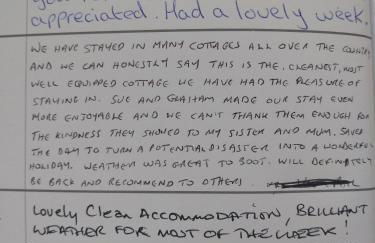 appreciated. Had a lovely week.
WE HAVE STAYED IN MANY COTTAGES ALL OVER THE COUNTRY
AND WE CAN HONESTLY SAY THIS IS THE, CLEANEST, MOST
WELL EQUIPPED COTTAGE WE HAVE HAD THE PLEASURE OF
STAYING IN. SUE AND GRAHAM MADE OUR STAY EVEN
MORE ENJOYABLE AND WE CAN'T THANK THEM ENOUGH FOR
THE KINDNESS THEY SHOWED TO MY SISTER AND MUM. SAVED
THE DAY TO TURN A POTENTIAL DISASTER INTO A WONDERFUL
HOLIDAY. WEATHER WAS GREAT TO BOOT. WILL DEFINITELY
BE BACK AND RECOMMEND TO OTHERS.
Lovely Clean ACCOMMODATION, BRILLIANT
WEATHER FOR MOST OF THE WEEK!